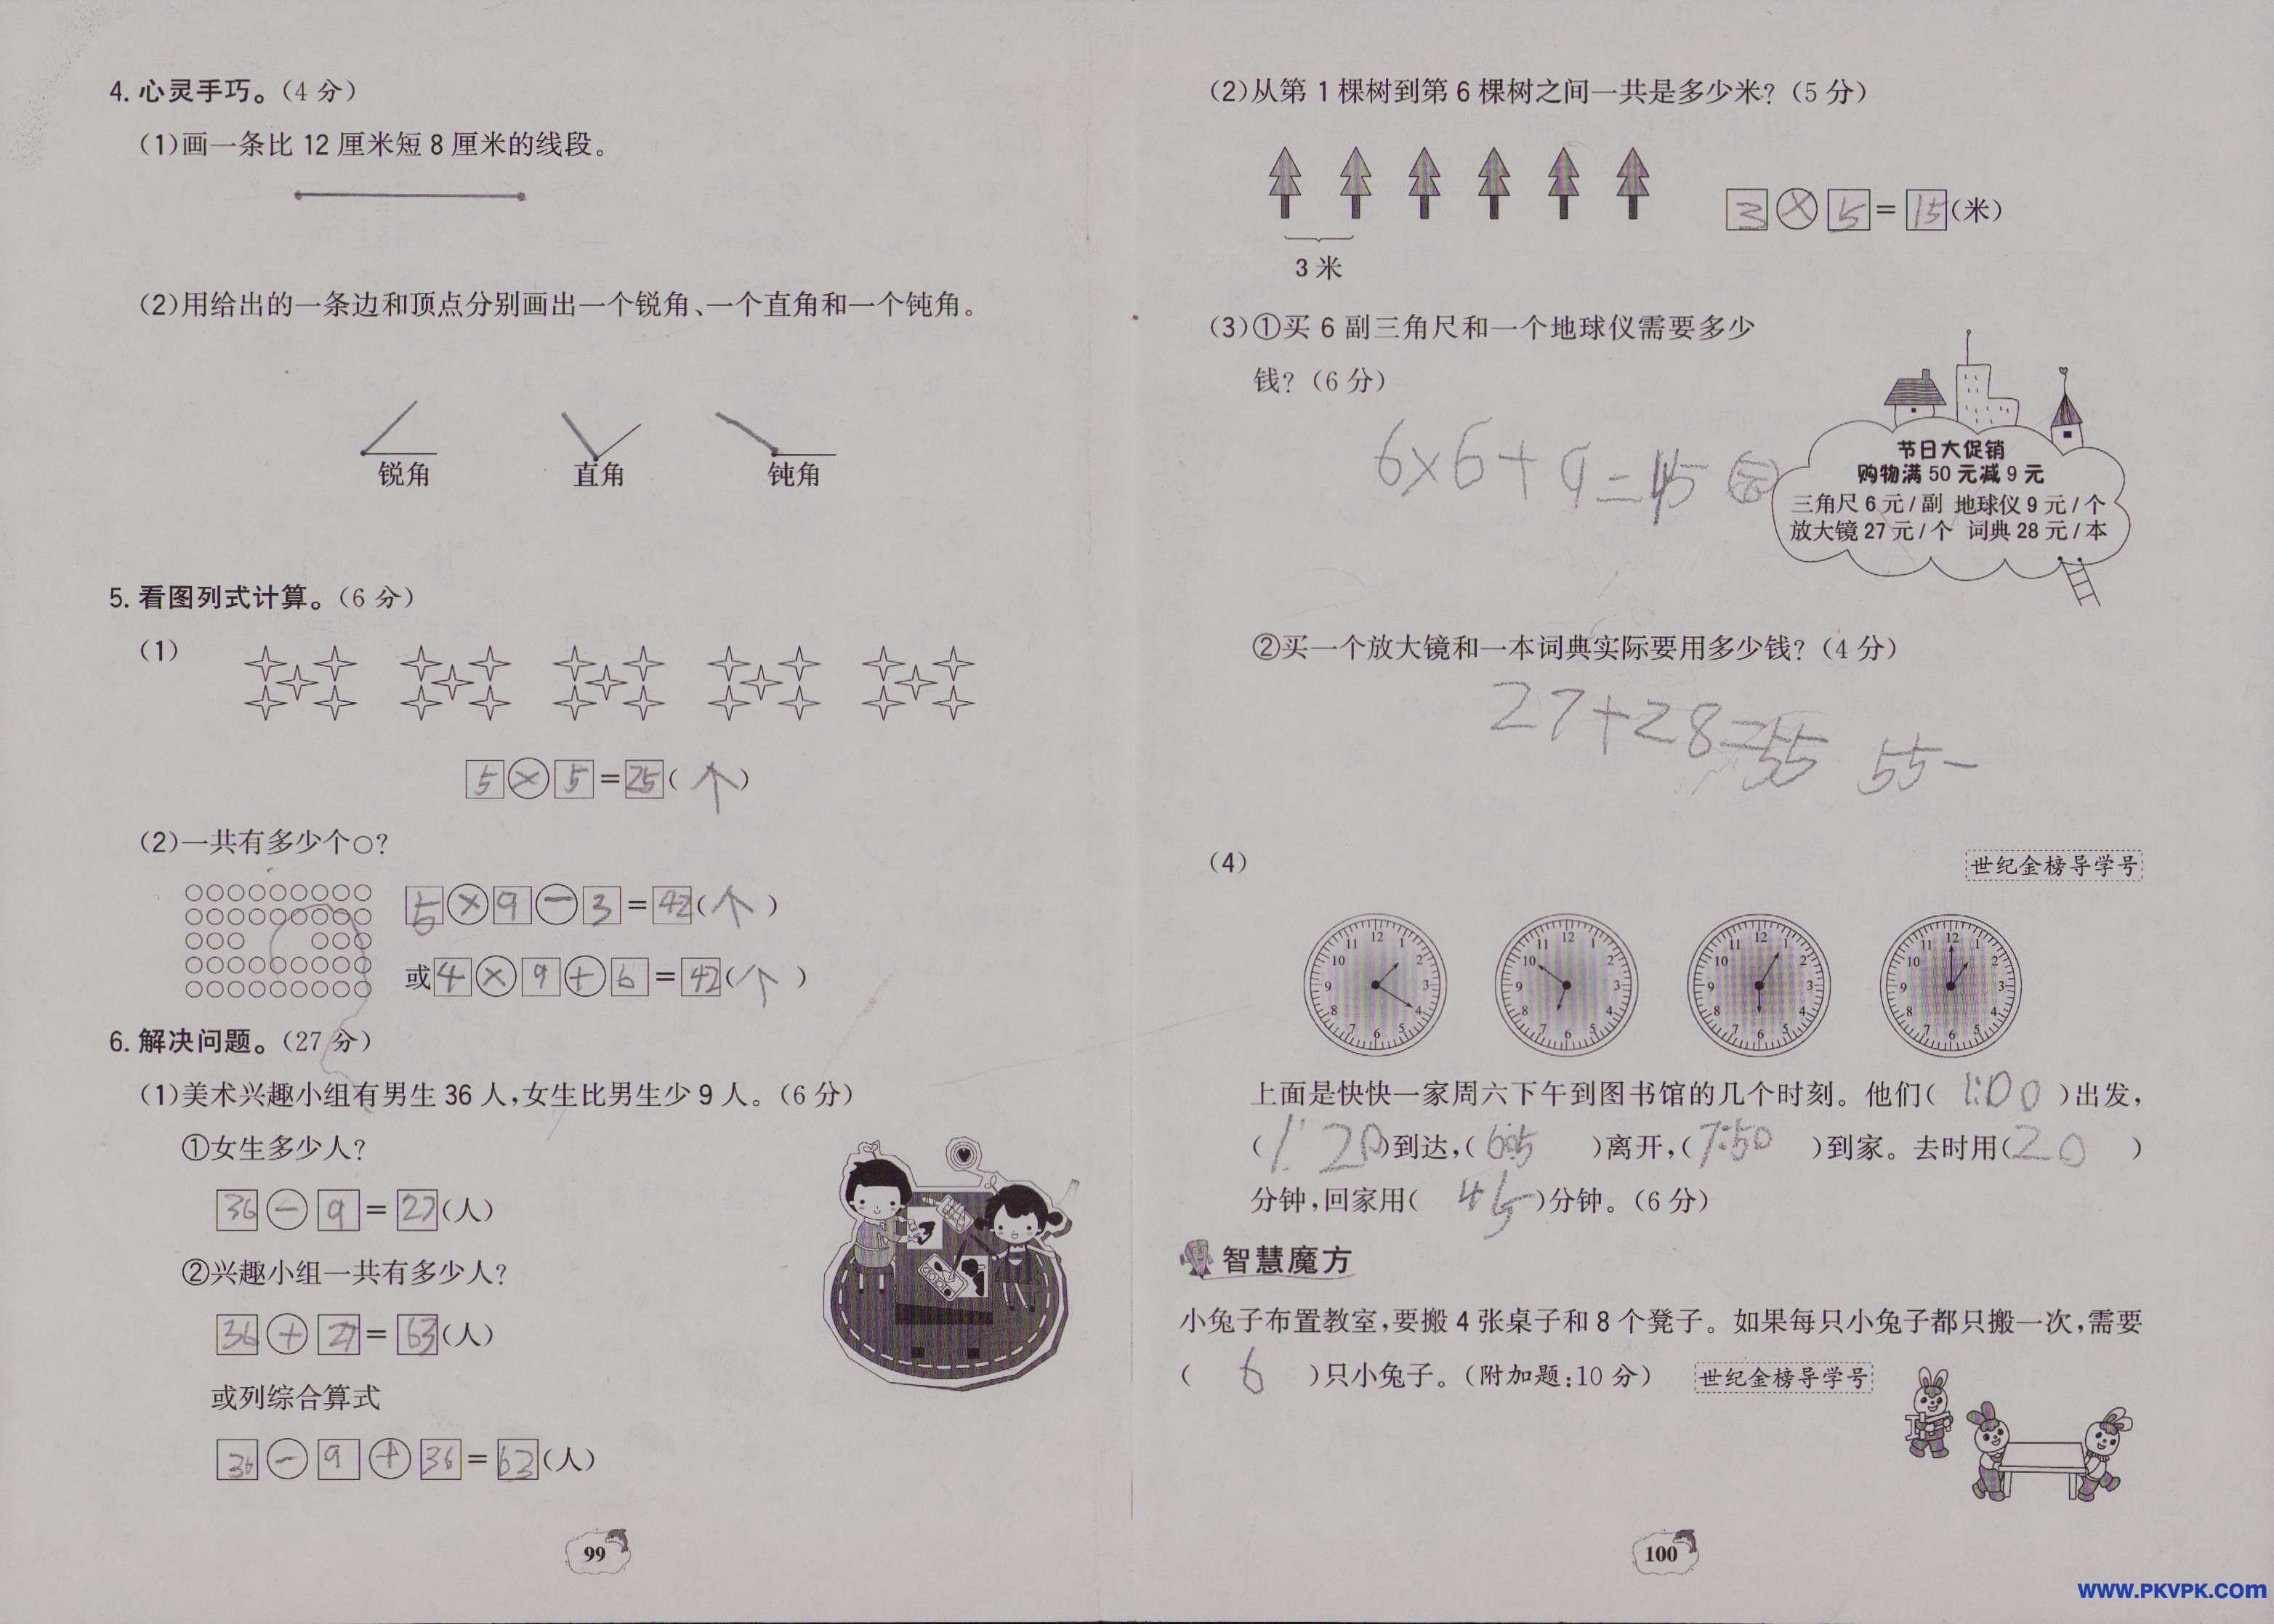 4. 心灵手巧。(4 分)
(1)画一条比 12 厘米短 8 厘米的线段。
(2)用给出的一条边和顶点分别画出一个锐角、一个直角和一个钝角。
锐角 直角 钝角
5. 看图列式计算。(6 分)
(1)
5×5=25(个)
(2)一共有多少个○?
5×9-3=42(个)
或4×9+6=42(个)
6. 解决问题。(27 分)
(1)美术兴趣小组有男生 36 人,女生比男生少 9 人。(6 分)
①女生多少人?
36-9=27(人)
②兴趣小组一共有多少人?
36+27=63(人)
或列综合算式
36-9+36=63(人)
99
(2)从第 1 棵树到第 6 棵树之间一共是多少米?(5 分)
3×5=15(米)
3 米
(3)①买 6 副三角尺和一个地球仪需要多少
钱?(6 分)
6×6+9=45
节日大促销
购物满 50 元减 9 元
三角尺 6 元/副 地球仪 9 元/个
放大镜 27 元/个 词典 28 元/本
②买一个放大镜和一本词典实际要用多少钱?(4 分)
27+28=55 55-
(4)
世纪金榜导学号
12 1 2 3 4 5 6 7 8 9 10 11
12 1 2 3 4 5 6 7 8 9 10 11
12 1 2 3 4 5 6 7 8 9 10 11
12 1 2 3 4 5 6 7 8 9 10 11
上面是快快一家周六下午到图书馆的几个时刻。他们( 1:00 )出发,
(1:20)到达,( )离开,(7:50)到家。去时用(20)
分钟,回家用(45)分钟。(6 分)
智慧魔方
小兔子布置教室,要搬 4 张桌子和 8 个凳子。如果每只小兔子都只搬一次,需要
( 6 )只小兔子。(附加题:10 分) 世纪金榜导学号
100
www.PKVPK.com